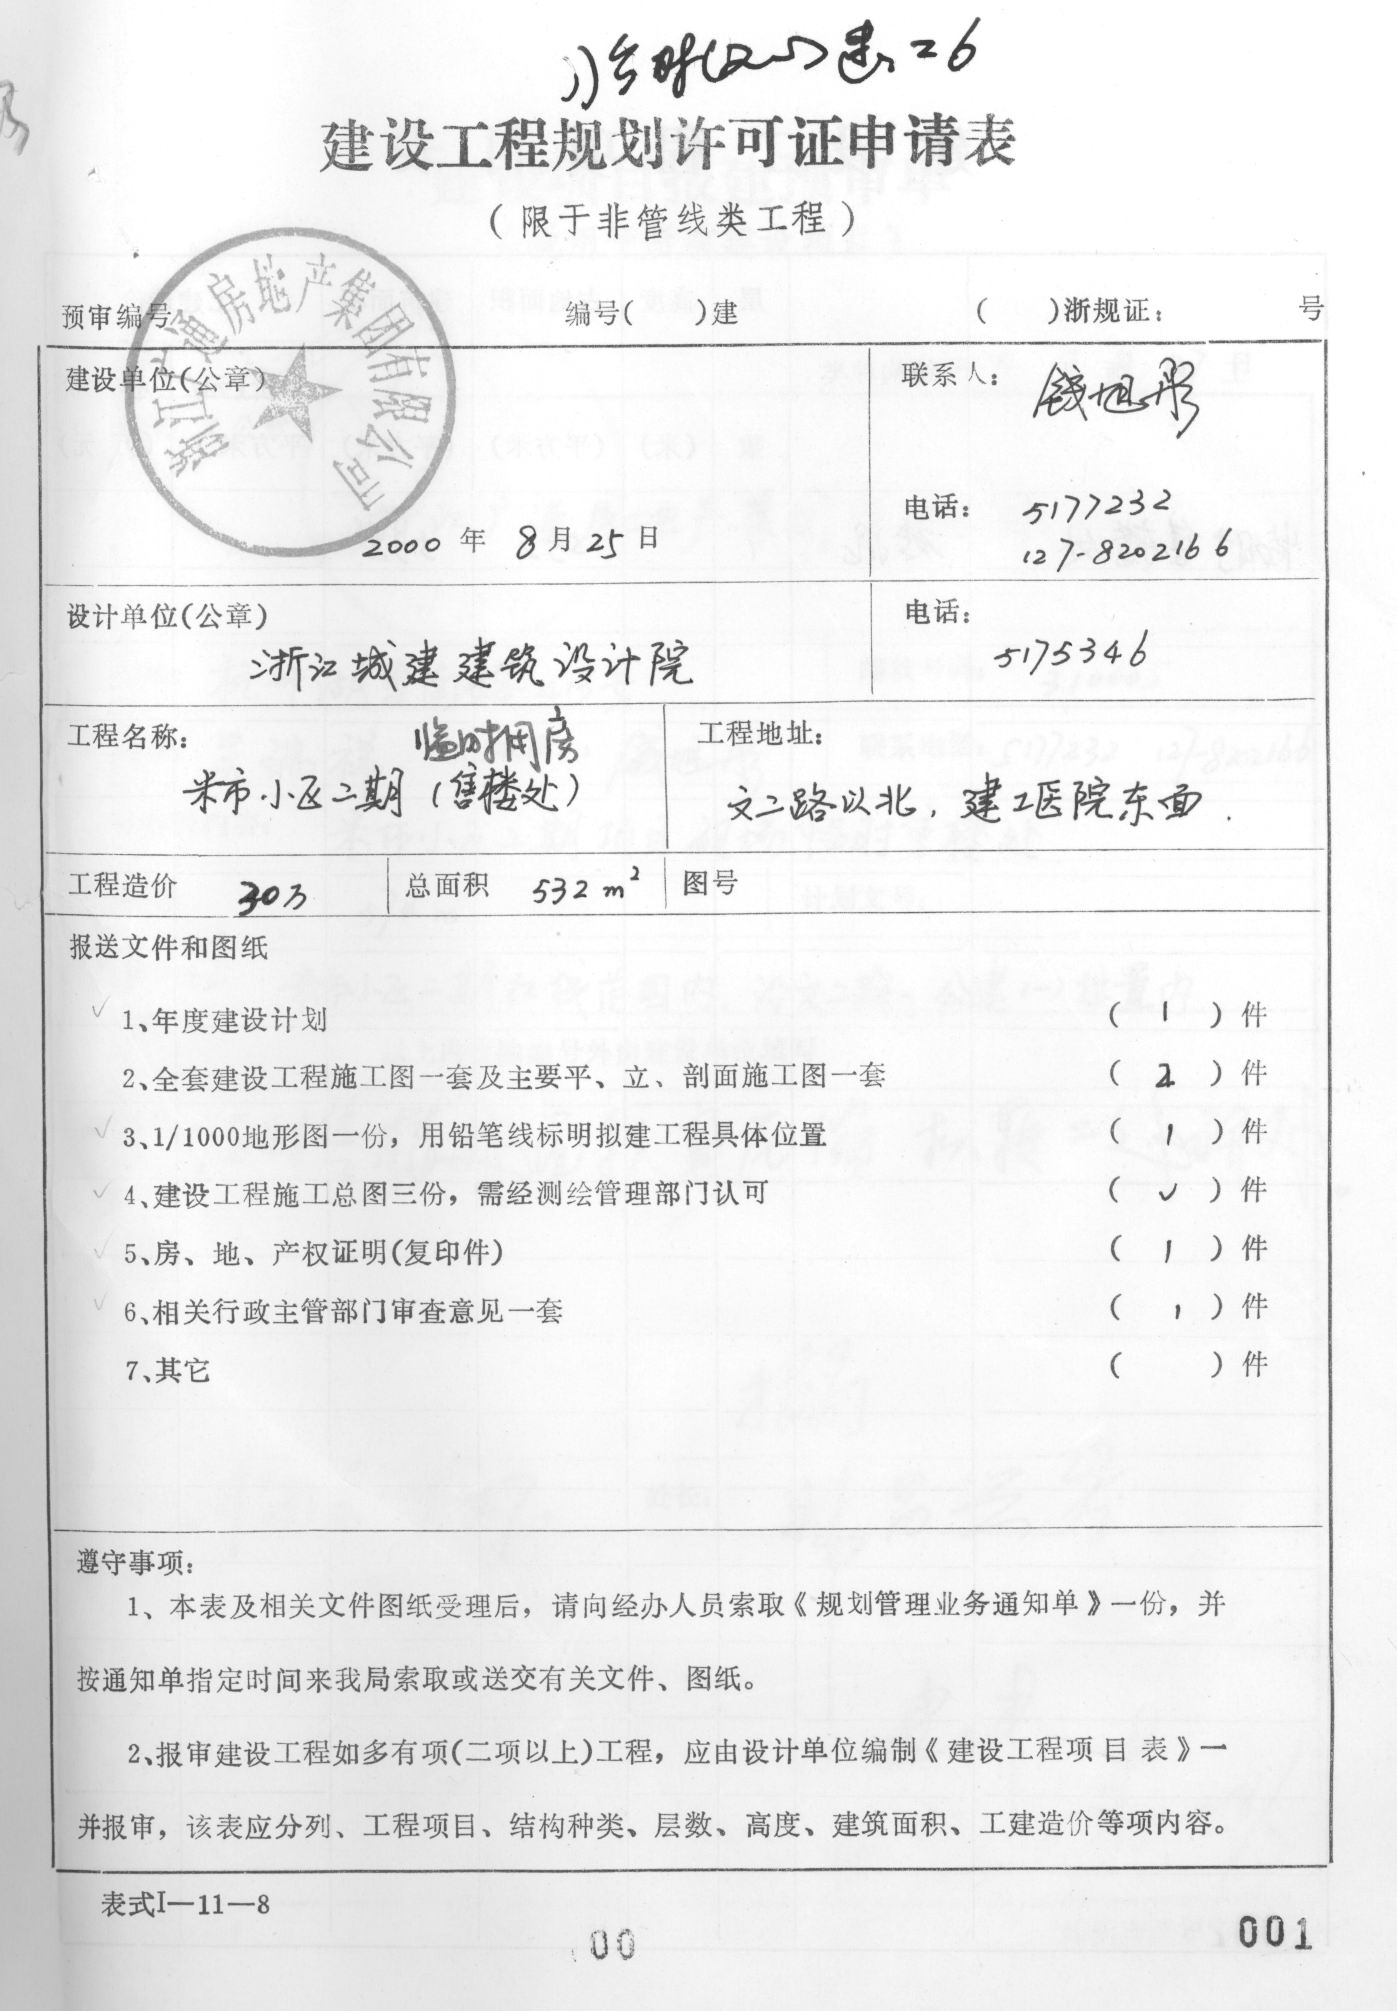 临时(2000)建 26
建设工程规划许可证申请表
(限于非管线类工程)
预审编号 编号( )建 ( )浙规证: 号
建设单位(公章) 联系人: 钱旭彤
浙江广通房地产集团有限公司
电话: 5177232
2000年8月25日 127-8202166
设计单位(公章) 电话:
浙江城建建筑设计院 5175346
工程名称: 临时用房 工程地址:
米市小区二期(售楼处) 文二路以北,建工医院东面.
工程造价 30万 总面积 532m² 图号
报送文件和图纸
√ 1、年度建设计划 ( 1 )件
2、全套建设工程施工图一套及主要平、立、剖面施工图一套 ( 2 )件
√ 3、1/1000地形图一份,用铅笔线标明拟建工程具体位置 ( 1 )件
√ 4、建设工程施工总图三份,需经测绘管理部门认可 ( √ )件
√ 5、房、地、产权证明(复印件) ( 1 )件
√ 6、相关行政主管部门审查意见一套 ( 1 )件
7、其它 ( )件
遵守事项:
1、本表及相关文件图纸受理后,请向经办人员索取《规划管理业务通知单》一份,并
按通知单指定时间来我局索取或送交有关文件、图纸。
2、报审建设工程如多有项(二项以上)工程,应由设计单位编制《建设工程项目表》一
并报审,该表应分列、工程项目、结构种类、层数、高度、建筑面积、工建造价等项内容。
表式I—11—8
00 001